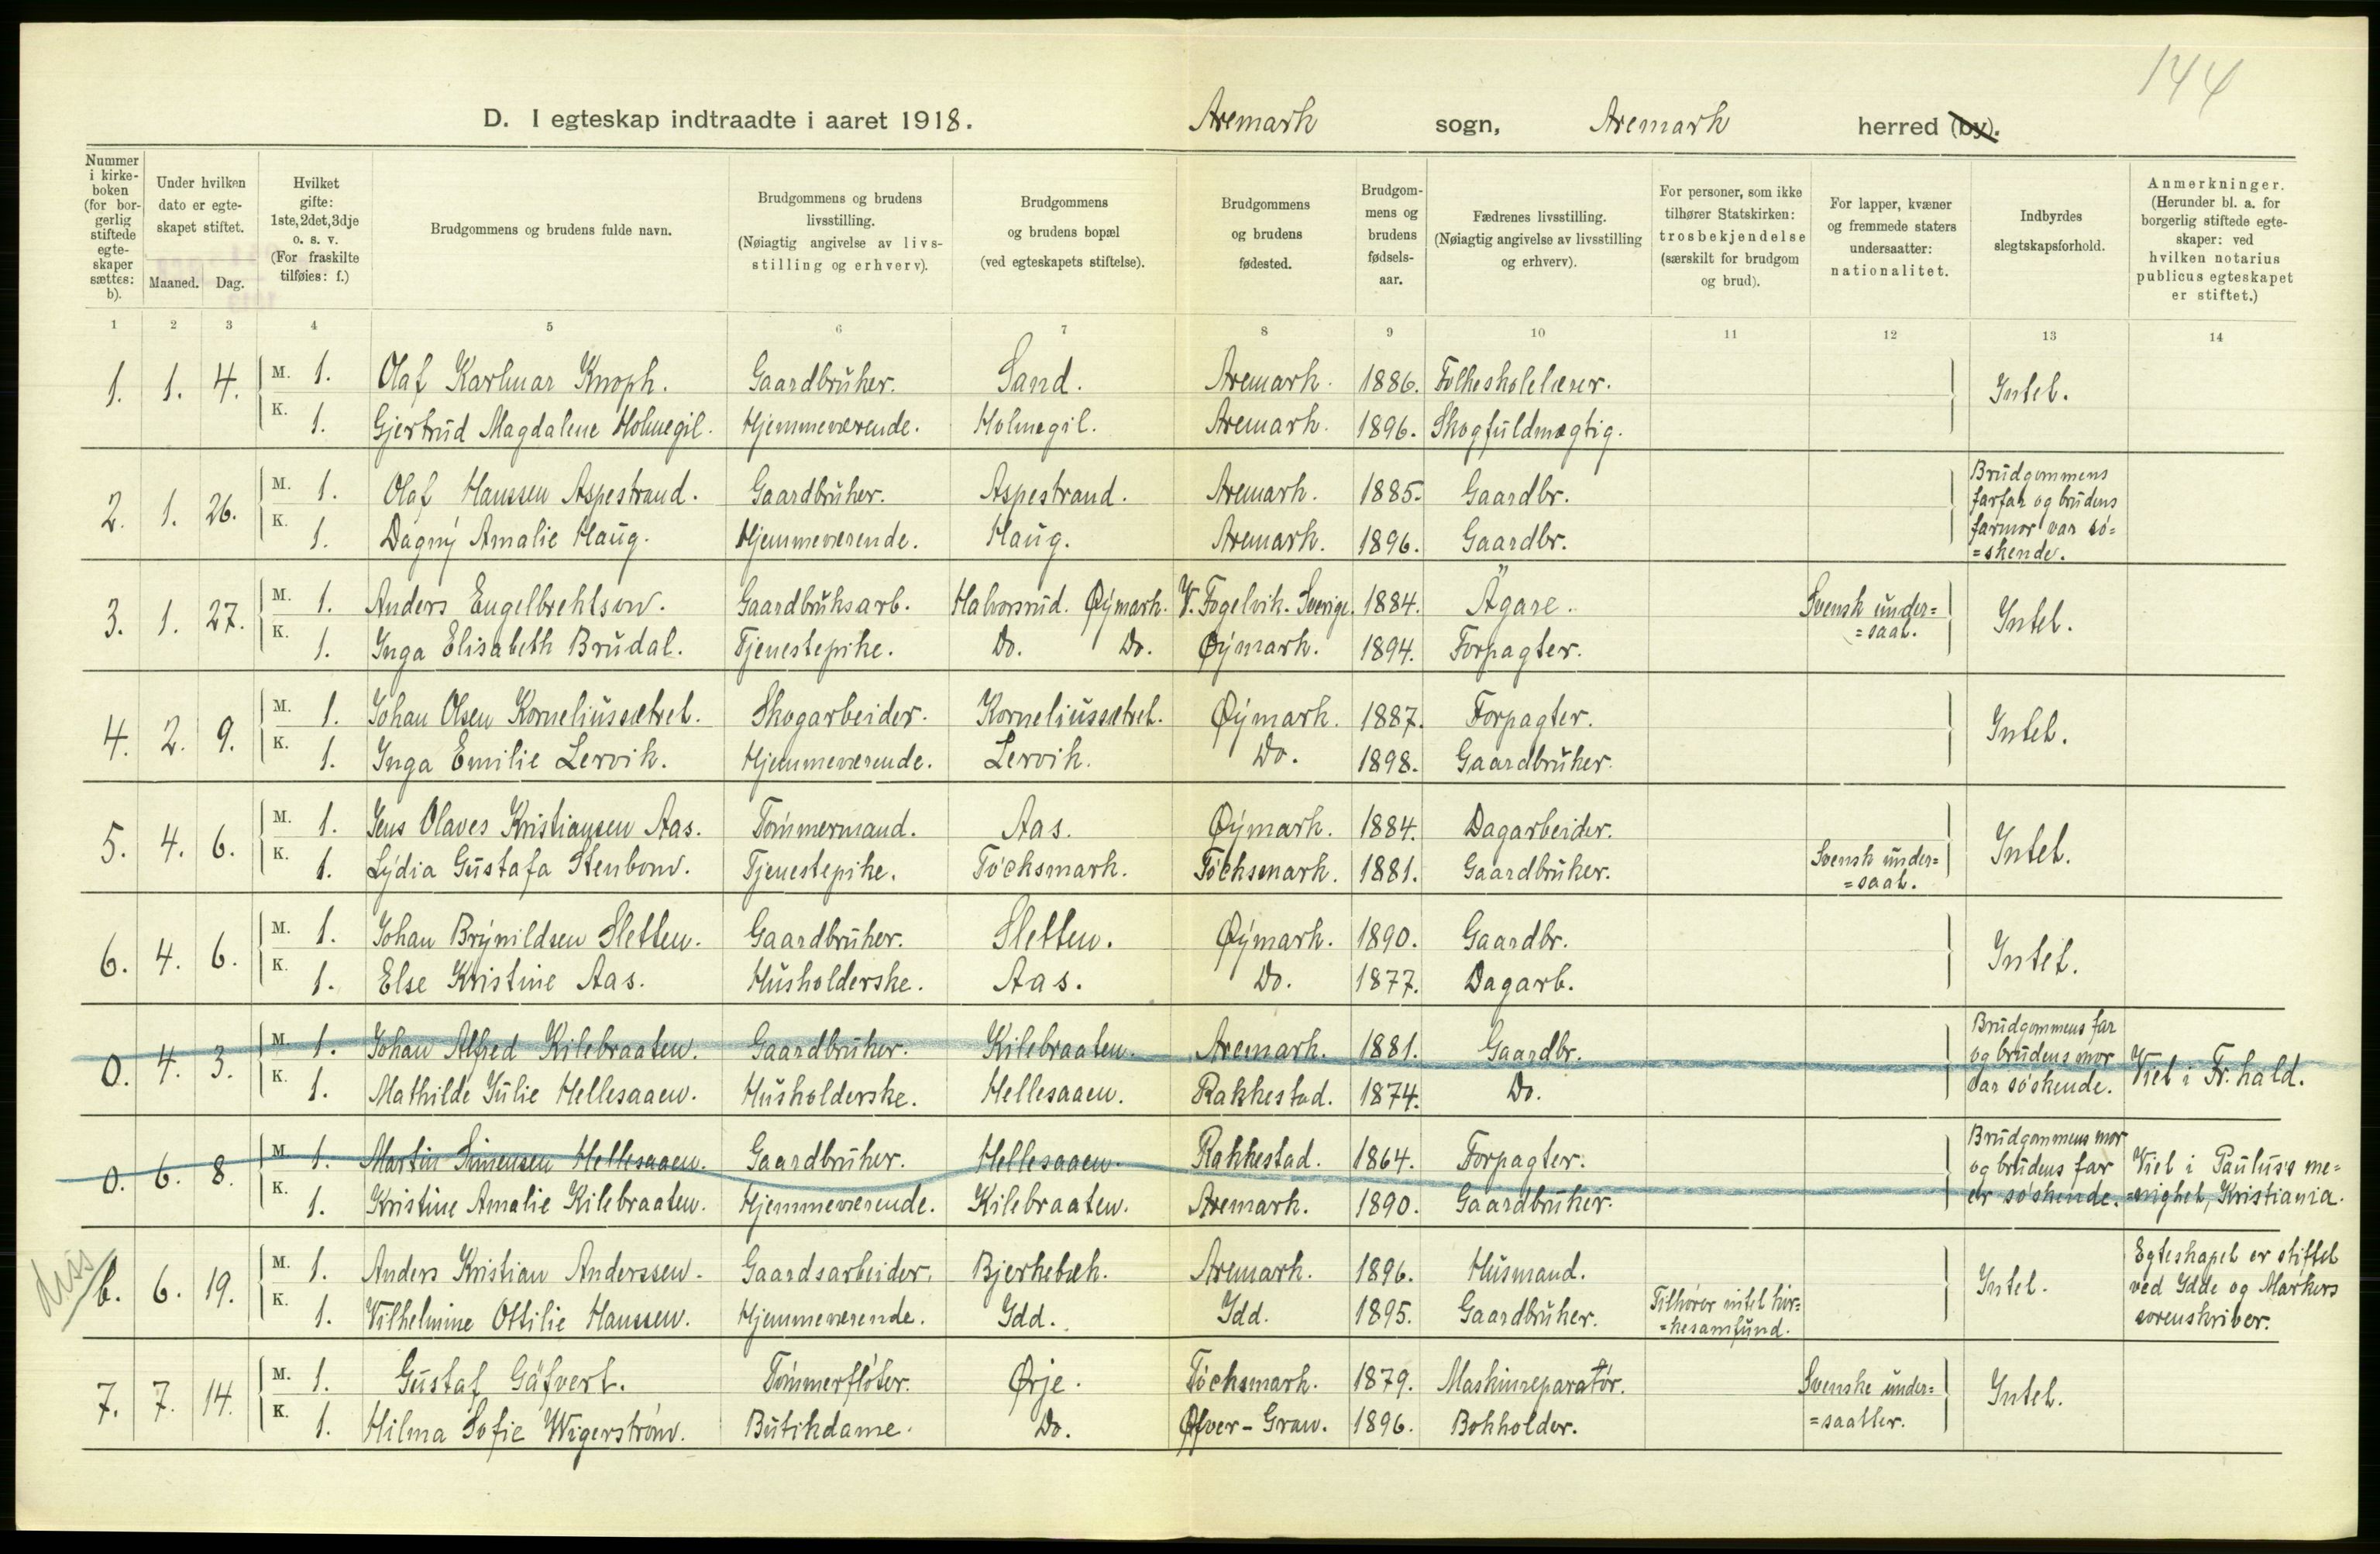 144
D. I egteskap indtraadte i aaret 1918. Aremark sogn, Aremark herred (by).
Nummer i kirkeboken (for borgerlig stiftede egteskaper sættes: b).
Under hvilken dato er egteskapet stiftet. Maaned. Dag.
Hvilket gifte: 1ste, 2det, 3dje o. s. v. (For fraskilte tilføies: f.)
Brudgommens og brudens fulde navn.
Brudgommens og brudens livsstilling. (Nøiagtig angivelse av livsstilling og erhverv).
Brudgommens og brudens bopæl (ved egteskapets stiftelse).
Brudgommens og brudens fødested.
Brudgommens og brudens fødselsaar.
Fædrenes livsstilling. (Nøiagtig angivelse av livsstilling og erhverv).
For personer, som ikke tilhører Statskirken: trosbekjendelse (særskilt for brudgom og brud).
For lapper, kvæner og fremmede staters undersaatter: nationalitet.
Indbyrdes slegtskapsforhold.
Anmerkninger. (Herunder bl. a. for borgerlig stiftede egteskaper: ved hvilken notarius publicus egteskapet er stiftet.)
1 2 3 4 5 6 7 8 9 10 11 12 13 14
1. 1. 4. M. 1. Olaf Karlmar Knoph. Gaardbruker. Sand. Aremark. 1886. Folkeskolelærer. Intet.
K. 1. Gjertrud Magdalene Holmegil. Hjemmeværende. Holmegil. Aremark. 1896. Skogfuldmægtig.
2. 1. 26. M. 1. Olaf Hanssen Aspestrand. Gaardbruker. Aspestrand. Aremark. 1885. Gaardbr. Brudgommens farfar og brudens
K. 1. Dagny Amalie Haug. Hjemmeværende. Haug. Aremark. 1896. Gaardbr. farmor var sö= =skende.
3. 1. 27. M. 1. Anders Engelbrektson. Gaardbruksarb. Halvorsrud. Øymark. V. Fogelvik. Sverige. 1884. Ägare. Svensk under= =saat. Intet.
K. 1. Inga Elisabeth Brudal. Tjenestepike. Do. Do. Øymark. 1894. Forpagter.
4. 2. 9. M. 1. Johan Olsen Korneliussætret. Skogarbeider. Korneliussætret. Øymark. 1887. Forpagter. Intet.
K. 1. Inga Emilie Lervik. Hjemmeværende. Lervik. Do. 1898. Gaardbruker.
5. 4. 6. M. 1. Jens Olaves Kristiansen Aas. Tömmermand. Aas. Øymark. 1884. Dagarbeider. Intet.
K. 1. Lydia Gustafa Stenbom. Tjenestepike. Töcksmark. Töcksmark. 1881. Gaardbruker. Svensk under= =saat.
6. 4. 6. M. 1. Johan Brynildsen Sletten. Gaardbruker. Sletten. Øymark. 1890. Gaardbr. Intet.
K. 1. Else Kristine Aas. Husholderske. Aas. Do. 1877. Dagarb.
0. 4. 3. M. 1. Johan Alfred Kilebraaten. Gaardbruker. Kilebraaten. Aremark. 1881. Gaardbr. Brudgommens far og brudens mor Viet i Fr.hald.
K. 1. Mathilde Julie Hellesaaen. Husholderske. Hellesaaen. Rakkestad. 1874. Do. var söskende.
0. 6. 8. M. 1. Martin Simensen Hellesaaen. Gaardbruker. Hellesaaen. Rakkestad. 1864. Forpagter. Brudgommens mor og brudens far Viet i Paulus's me=
K. 1. Kristine Amalie Kilebraaten. Hjemmeværende. Kilebraaten. Aremark. 1890. Gaardbruker. er söskende. =nighet, Kristiania.
diss b. 6. 19. M. 1. Anders Kristian Anderssen. Gaardsarbeider. Bjerkebæk. Aremark. 1896. Husmand. Intet. Egteskapet er stiftet ved Idde og Markers
K. 1. Vilhelmine Ottilie Hanssen. Hjemmeværende. Idd. Idd. 1895. Gaardbruker. Tilhörer intet kir= =kesamfund. sorenskriver.
7. 7. 14. M. 1. Gustaf Gäfvert. Tömmerflöter. Ørje. Töcksmark. 1879. Maskinreparatör. Svenske under= Intet.
K. 1. Hilma Sofie Wigerström. Butikdame. Do. Øfver-Gran. 1896. Bokholder. =saatter.